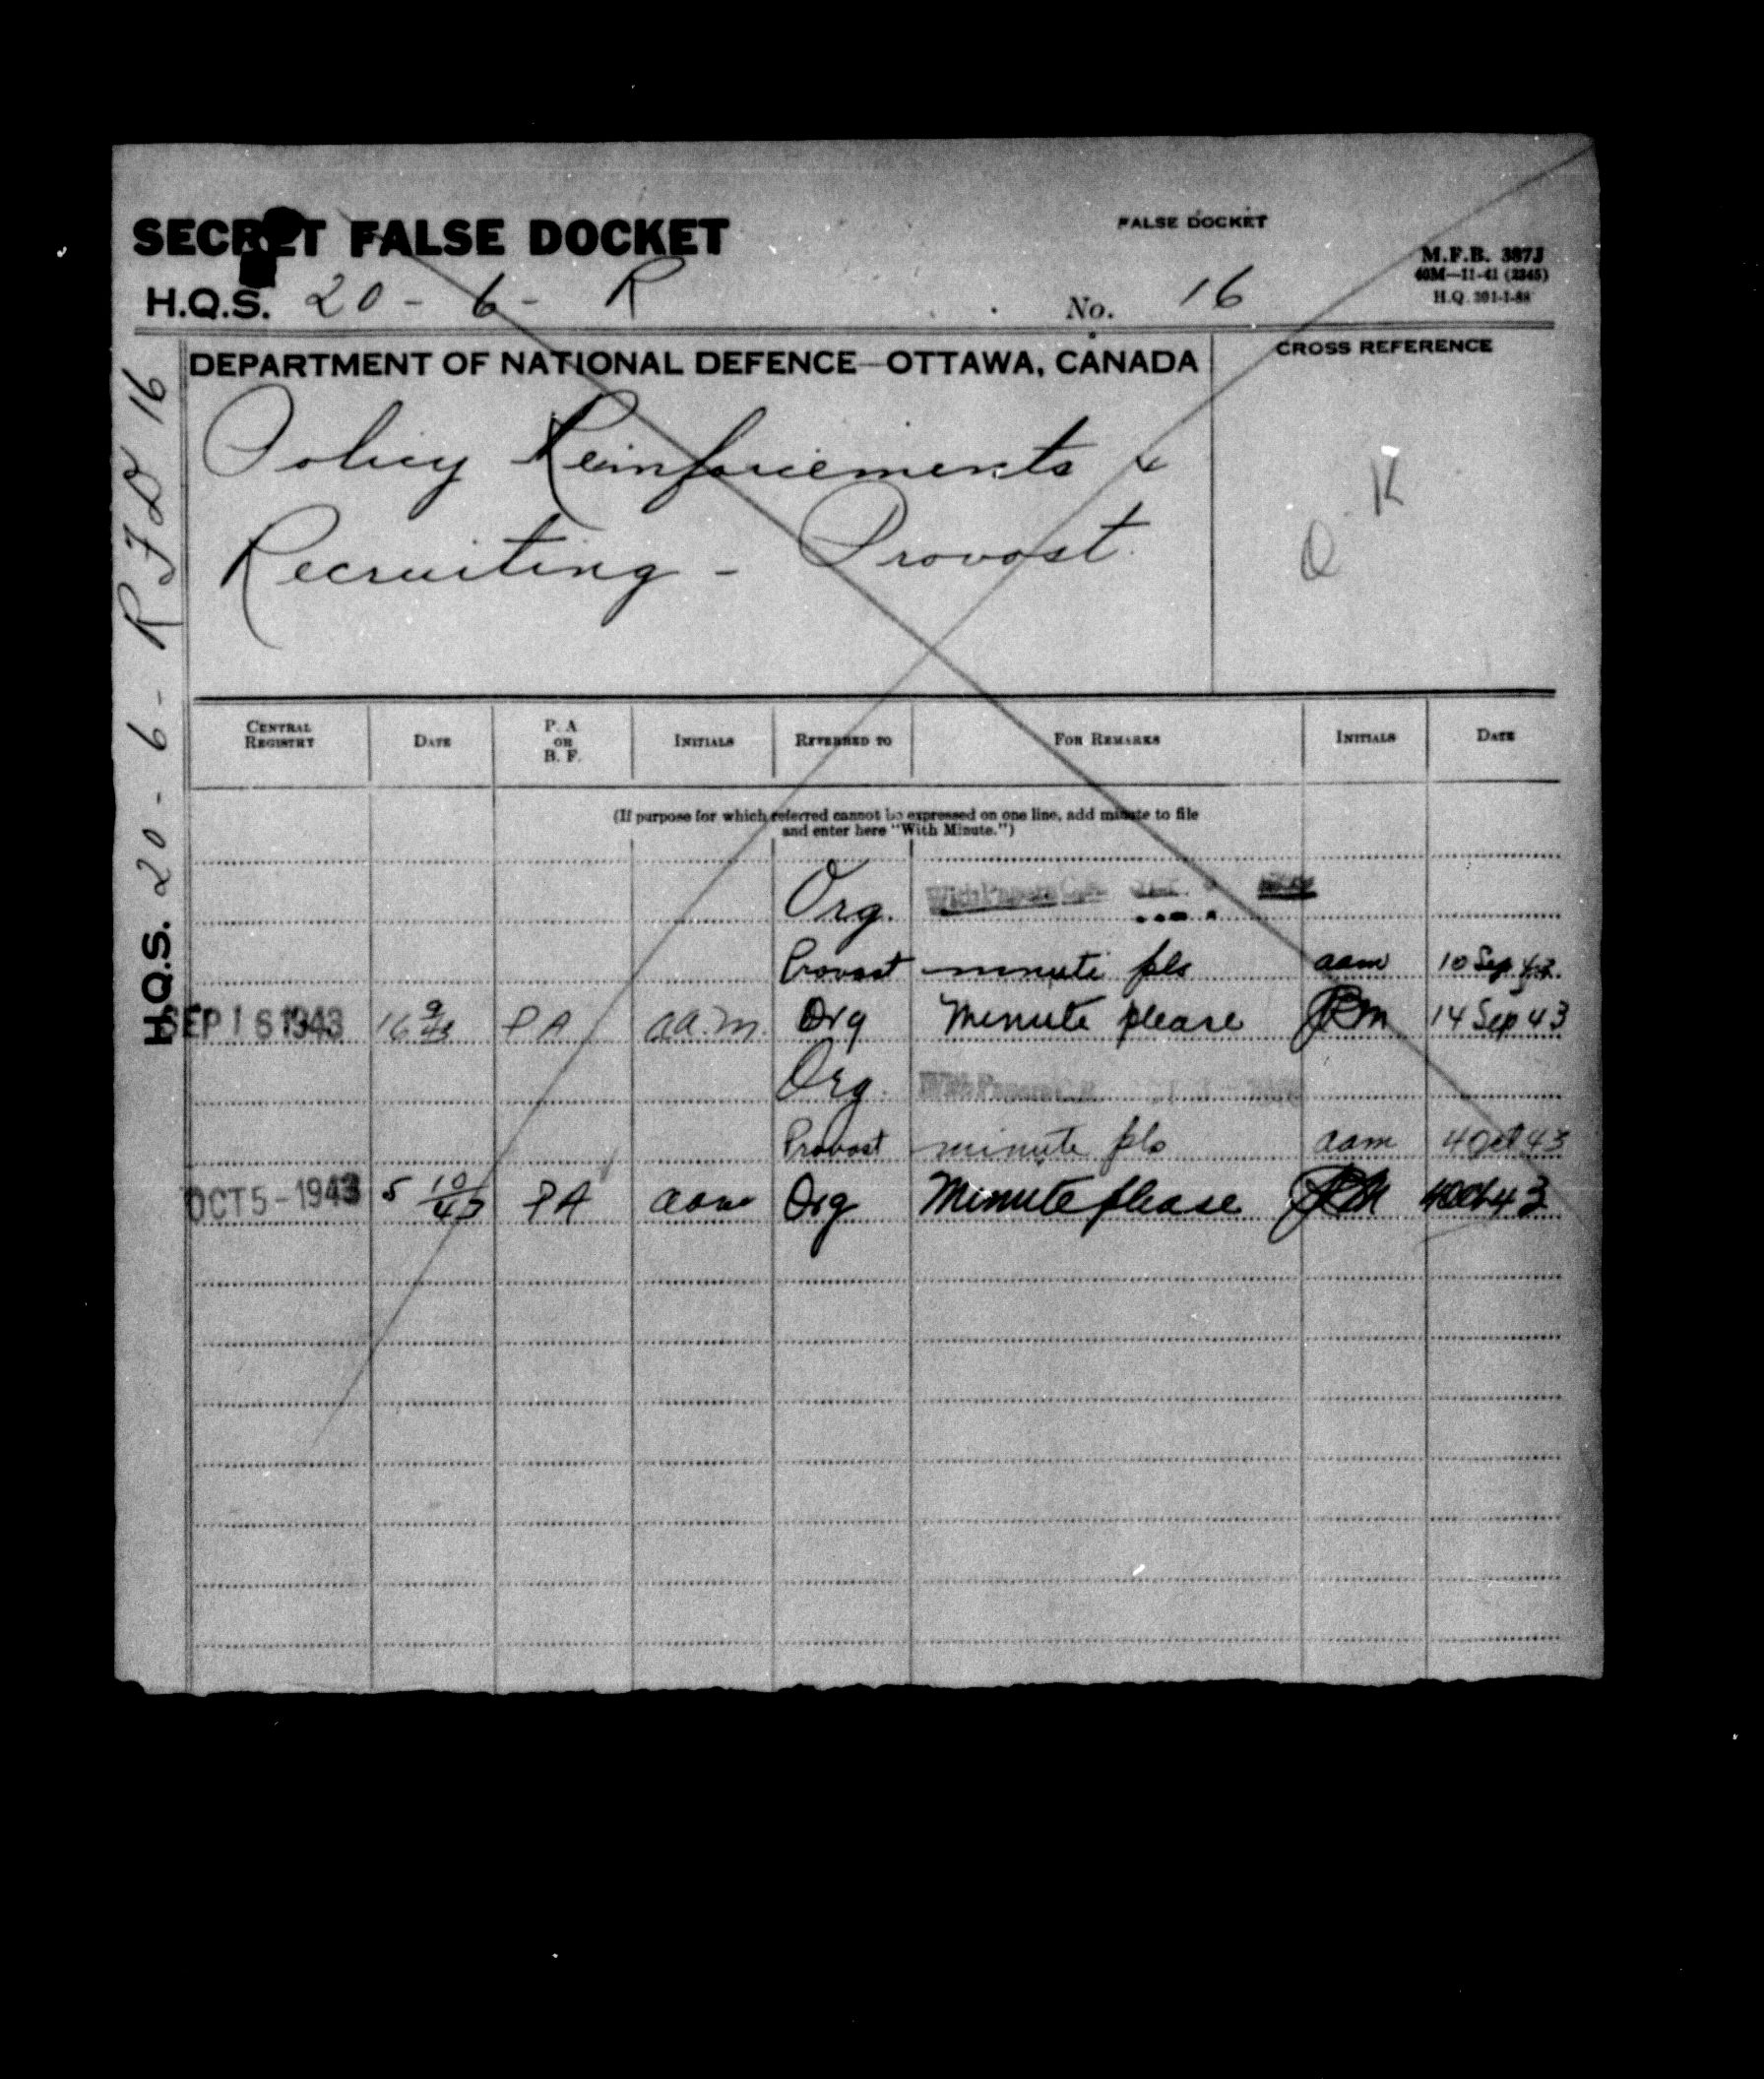 SECRET FALSE DOCKET
FALSE DOCKET
M.F.B. 387J
40M—11-41 (2345)
H.Q. 201-1-88
H.Q.S. 20 - 6 - R No. 16
DEPARTMENT OF NATIONAL DEFENCE—OTTAWA, CANADA
CROSS REFERENCE
Policy Reinforcements &
Recruiting - Provost
K
O
H.Q.S. 20 - 6 - R F D 16
CENTRAL REGISTRY DATE P. A OR B. F. INITIALS REFERRED TO FOR REMARKS INITIALS DATE
(If purpose for which referred cannot be expressed on one line, add minute to file
and enter here "With Minute.")
Org. With Papers
Provost minute pls aam 10 Sep 43
SEP 16 1943 16 9/43 PA aa.m. Org Minute please 14 Sep 43
Org. With Papers
Provost minute pls aam 4 Oct 43
OCT 5 - 1943 5 10/43 PA aam Org Minute please 4 Oct 43